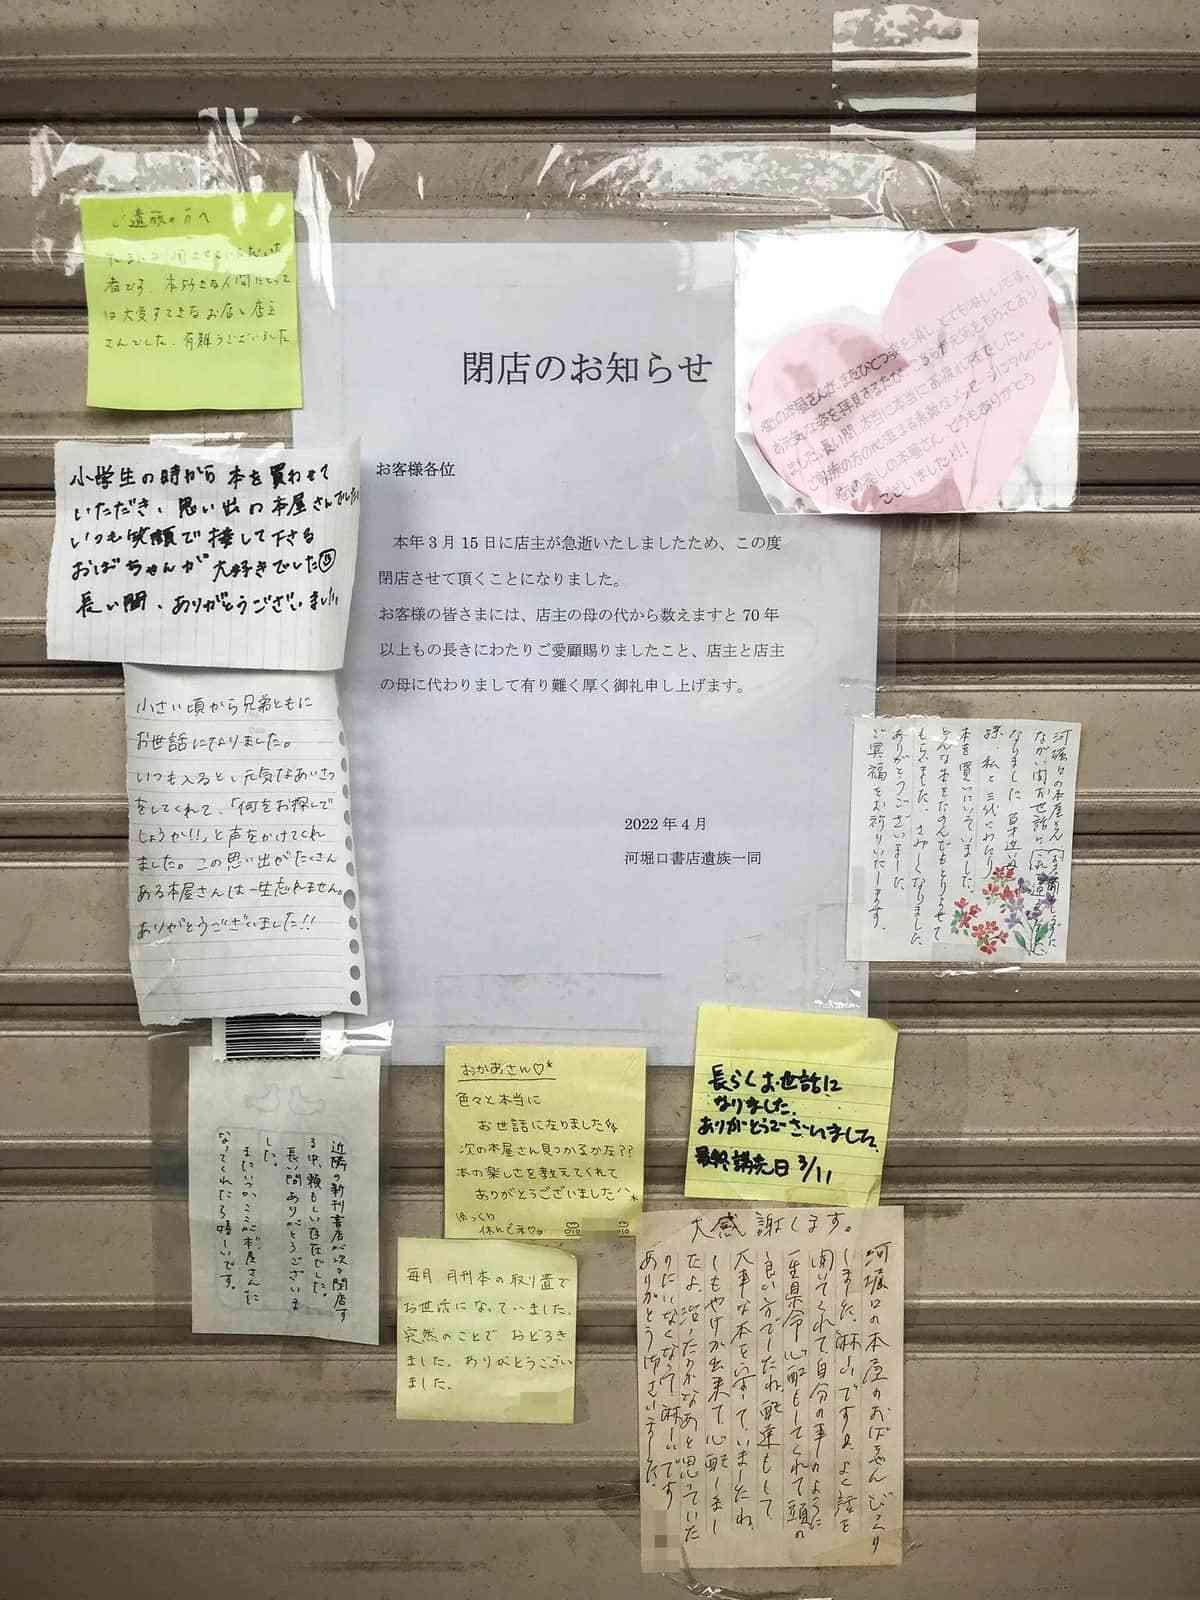 閉店のお知らせ
お客様各位
本年3月15日に店主が急逝いたしましたため、この度
閉店させて頂くことになりました。
お客様の皆さまには、店主の母の代から数えますと70年
以上もの長きにわたりご愛顧賜りましたこと、店主と店主
の母に代わりまして有り難く厚く御礼申し上げます。
2022年4月
河堀口書店遺族一同
ご遺族の方へ
者です。本好きな人間にとって
は大変すてきなお店と店主
さんでした。有難うございました
小学生の時から本を買わせて
いただき、思い出の本屋さんでした
いつも笑顔で接して下さる
おばちゃんが大好きでした
長い間、ありがとうございました
小さい頃から兄弟ともに
お世話になりました。
いつも入ると、元気なあいさつ
をしてくれて、「何をお探しで
しょうか!!」と声をかけてくれ
ました。この思い出がたくさん
ある本屋さんは一生忘れません。
ありがとうございました!!
近隣の新刊書店が次々閉店す
る中、頼もしい存在でした。
長い間ありがとうございま
した。
またいつかここが本屋さんに
なってくれたら嬉しいです。
おかあさん♡*
色々と本当に
お世話になりました
次の本屋さん見つかるかな??
本の楽しさを教えてくれて
ありがとうございました^^*
ゆっくり
休んでネ♡。
毎月 月刊本の取り置で
お世話になっていました。
突然のことで おどろき
ました。ありがとうござい
ました。
長らくお世話に
なりました。
ありがとうございました。
最終購読日 3/11
街の本屋さんが、またひとつ姿を消し、とても淋しいです。
お元気な姿を拝見するたび、こちらが元気をもらっており
ました。長い間、本当に本当にお疲れ様でした。
ございました!!
河堀口の本屋さん
ながい間お世話に
なりました
孫、私と三代にわたり
本を買いにいっていました。
どんな本をたのんでもとりよせて
もらいました。さみしくなりました
ありがとうございました。
ご冥福をお祈りいたします。
大感謝します。
河堀口の本屋のおばちゃんびっくり
しました。淋しいですね。よく話を
聞いてくれて自分の事のように
一生県命心配もしてくれて頭の
良い方でしたね。配達もして
大事な本を
しもやけが出来て心配しまし
たよ。
ありがとう御ざいました。